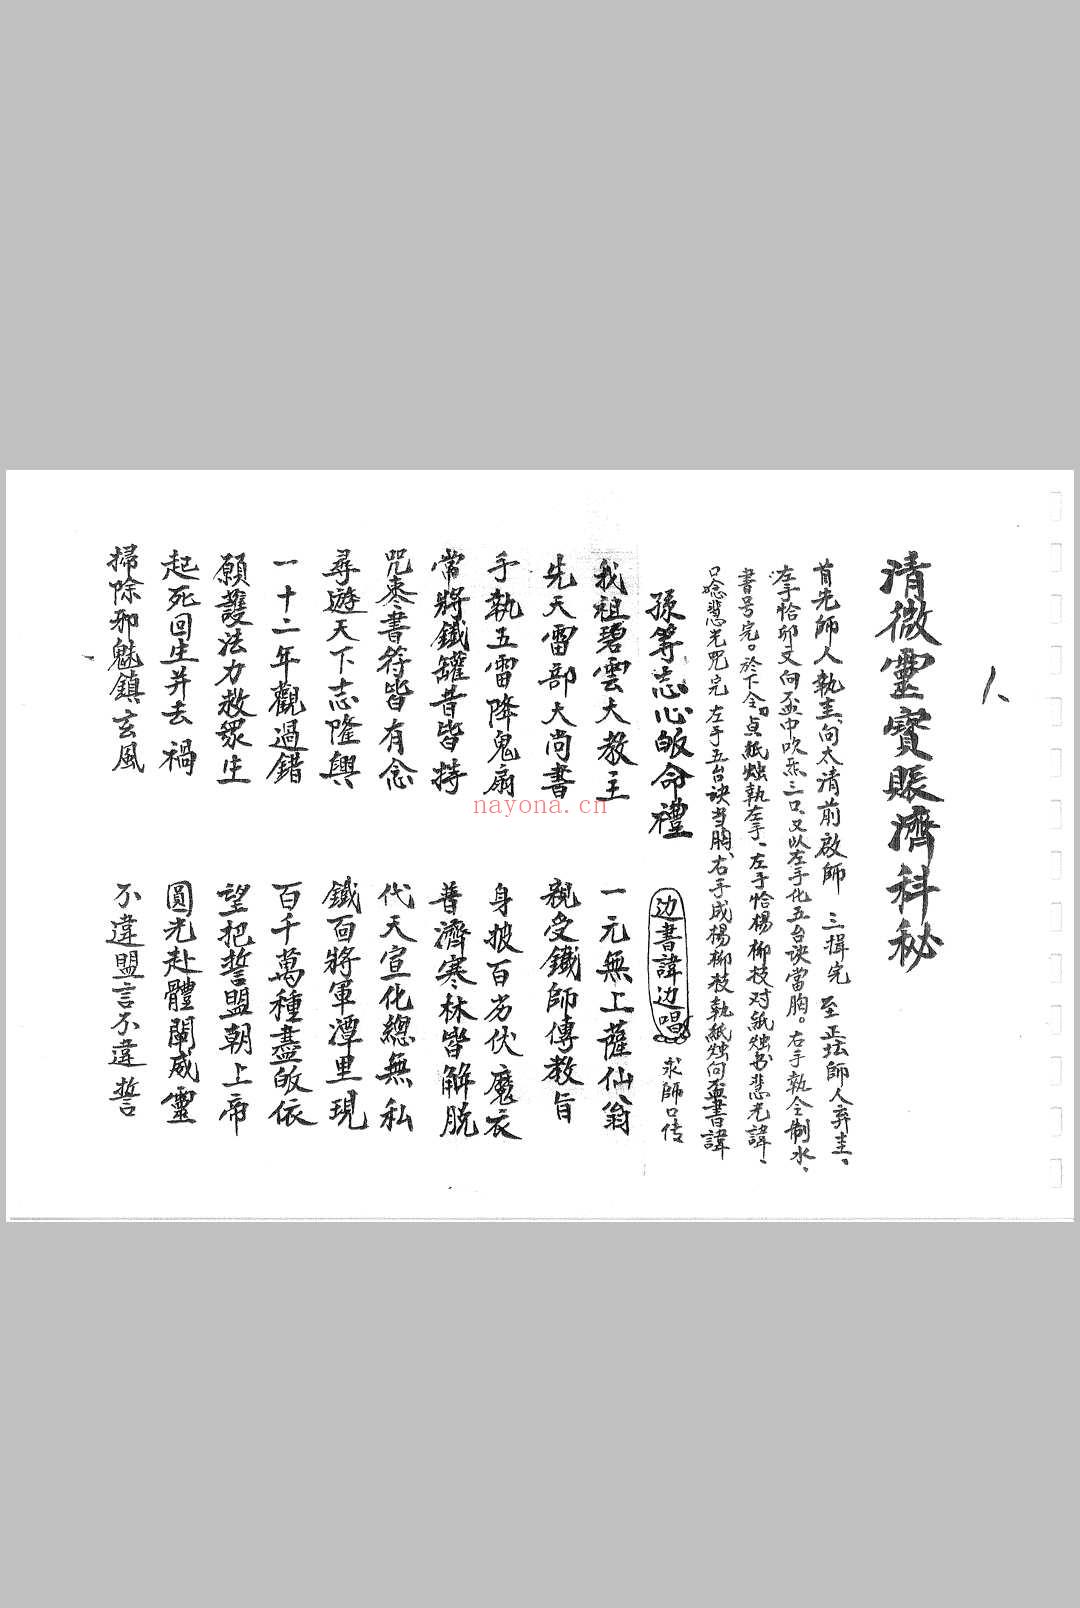 人
清微靈寶賑濟科秘
首先師人執圭、向太清前啟師 三揖完 至正坛師人弃圭、
左手恰卯文向盃中吹炁三口、又以左手化五台诀當胸。右手執令制水、
書号完。於下令、貞紙烛執左手、左手恰楊柳枝对紙烛书悲光諱、
口念悲光咒完 左手五台诀当胸、右手成楊柳枝執紙烛向盃書諱
孫等志心皈命禮 边書諱边唱 求師口传
我祖碧雲大教主 一元無上薩仙翁
先天雷部大尚書 親受鐵師傳教旨
手執五雷降鬼扇 身披百衲伏魔衣
常將鐵罐昔皆持 普濟寒林皆解脱
咒枣書符皆有念 代天宣化總無私
尋遊天下志隆興 鐵面將軍潭里現
一十二年觀過錯 百千萬種盡皈依
願護法力救眾生 望把誓盟朝上帝
起死回生并去禍 圓光赴體闡威靈
掃除邪魅鎮玄風 不違盟言不違誓
nayona.cn